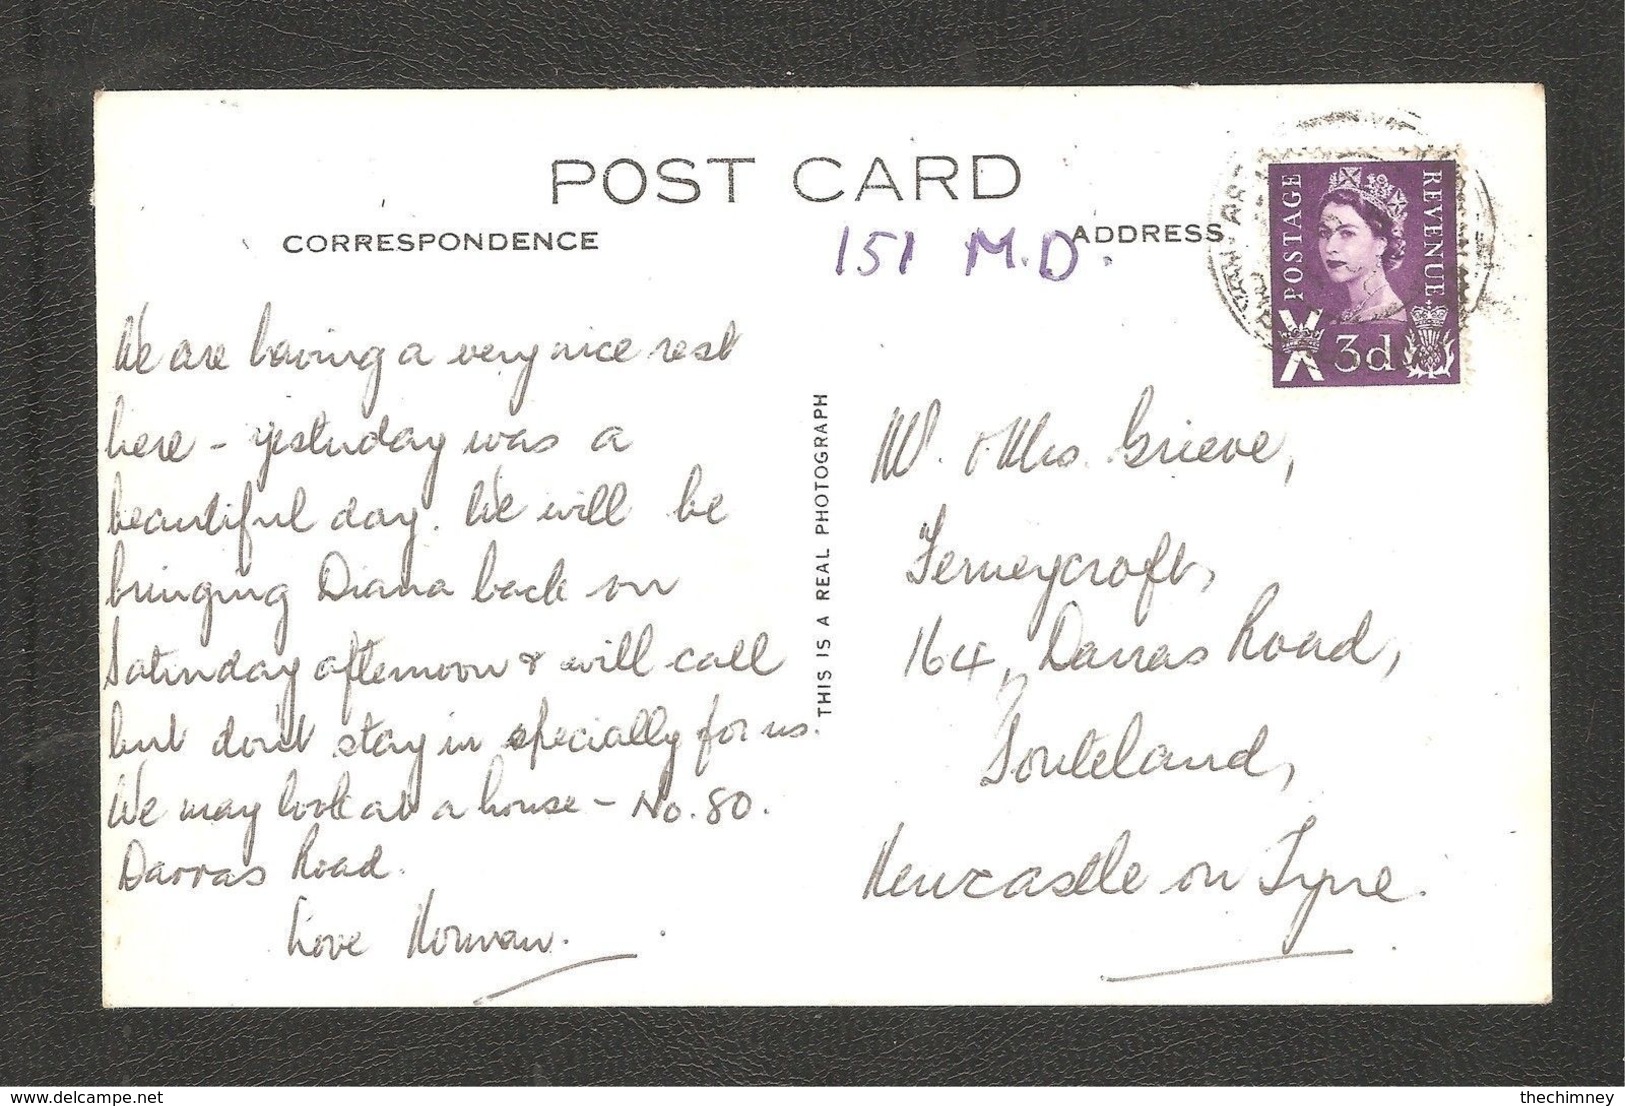 POST CARD
CORRESPONDENCE
ADDRESS
151 M.D.
POSTAGE
REVENUE
3d
We are having a very nice rest
here - yesterday was a
beautiful day. We will be
bringing Diana back on
Saturday afternoon & will call
but don't stay in specially for us.
We may look at a house - No. 80.
Darras Road.
Love Norman.
THIS IS A REAL PHOTOGRAPH
M. & Mrs. Grieve,
Ferneycroft,
164, Darras Road,
Ponteland,
Newcastle on Tyne.
delcampe.net
thechimney